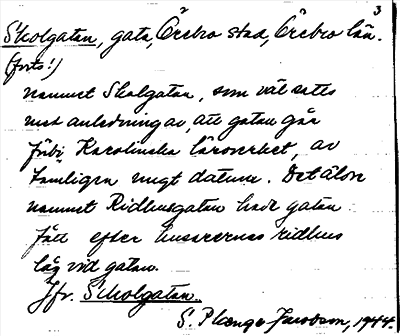 3
Skolgatan, gata, Örebro stad, Örebro län.
(forts!)
namnet Skolgatan, som väl satts
med anledning av, att gatan går
förbi Karolinska läroverket, av
tämligen nugt datum. Det äldre
namnet Ridhusgatan hade gatan
fått efter husarernas ridhus
låg vid gatan.
Jfr. Skolgatan.
S. Jacobson, 1944.